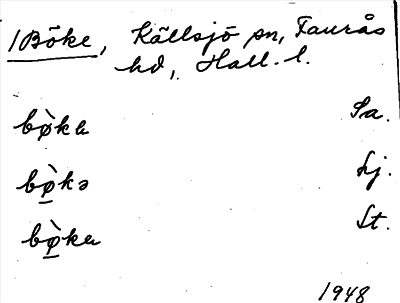 1 Böke, Källsjö sn, Faurås
hd, Hall. l.
bø̀ka Sa.
bø̲̀kə Lj.
bø̲̀ka St.
1948